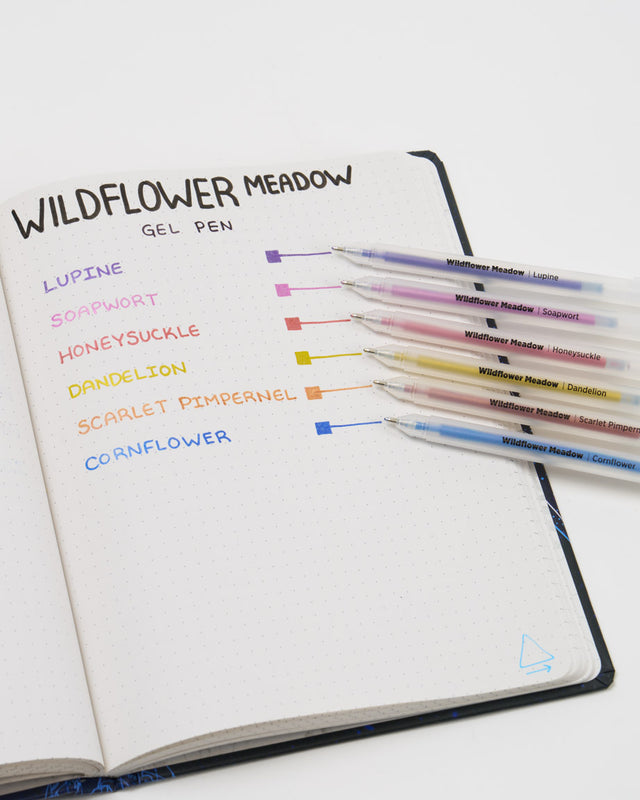 WILDFLOWER MEADOW
GEL PEN
LUPINE
SOAPWORT
HONEYSUCKLE
DANDELION
SCARLET PIMPERNEL
CORNFLOWER
Wildflower Meadow | Lupine
Wildflower Meadow | Soapwort
Wildflower Meadow | Honeysuckle
Wildflower Meadow | Dandelion
Wildflower Meadow | Scarlet Pimpern
Wildflower Meadow | Cornflower